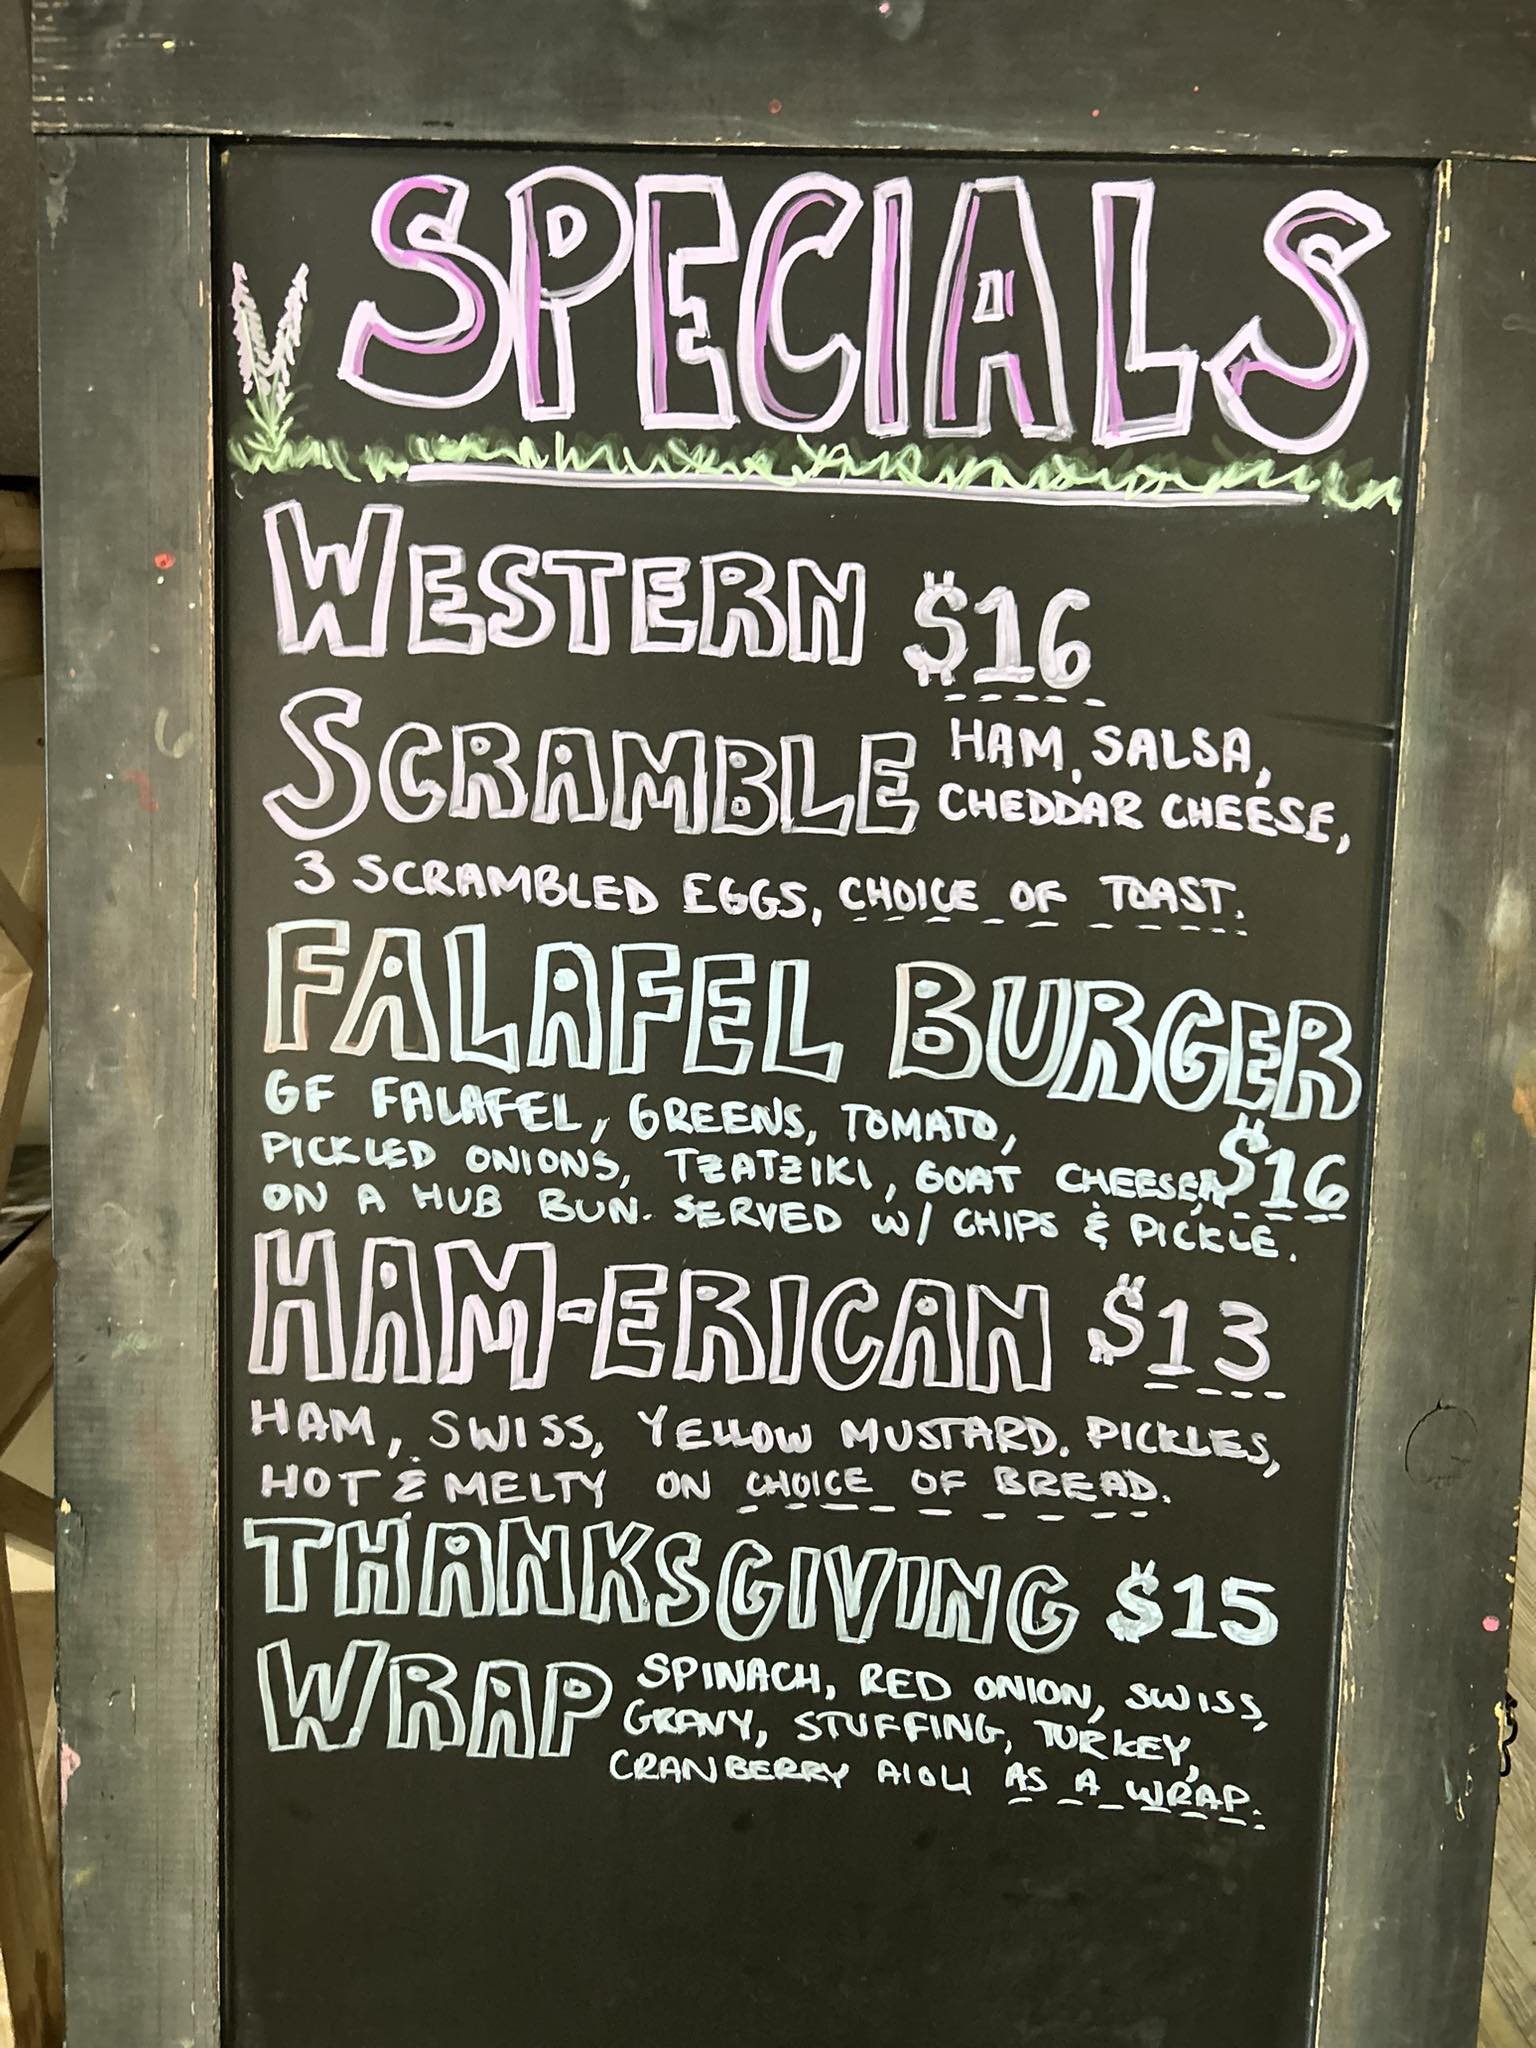 SPECIALS
WESTERN $16
SCRAMBLE HAM, SALSA,
CHEDDAR CHEESE,
3 SCRAMBLED EGGS, CHOICE OF TOAST.
FALAFEL BURGER
GF FALAFEL, GREENS, TOMATO,
PICKLED ONIONS, TZATZIKI, GOAT CHEESE, $16
ON A HUB BUN. SERVED W/ CHIPS & PICKLE.
HAM-ERICAN $13
HAM, SWISS, YELLOW MUSTARD, PICKLES,
HOT & MELTY ON CHOICE OF BREAD.
THANKSGIVING $15
WRAP SPINACH, RED ONION, SWISS,
GRAVY, STUFFING, TURKEY,
CRANBERRY AIOLI AS A WRAP.